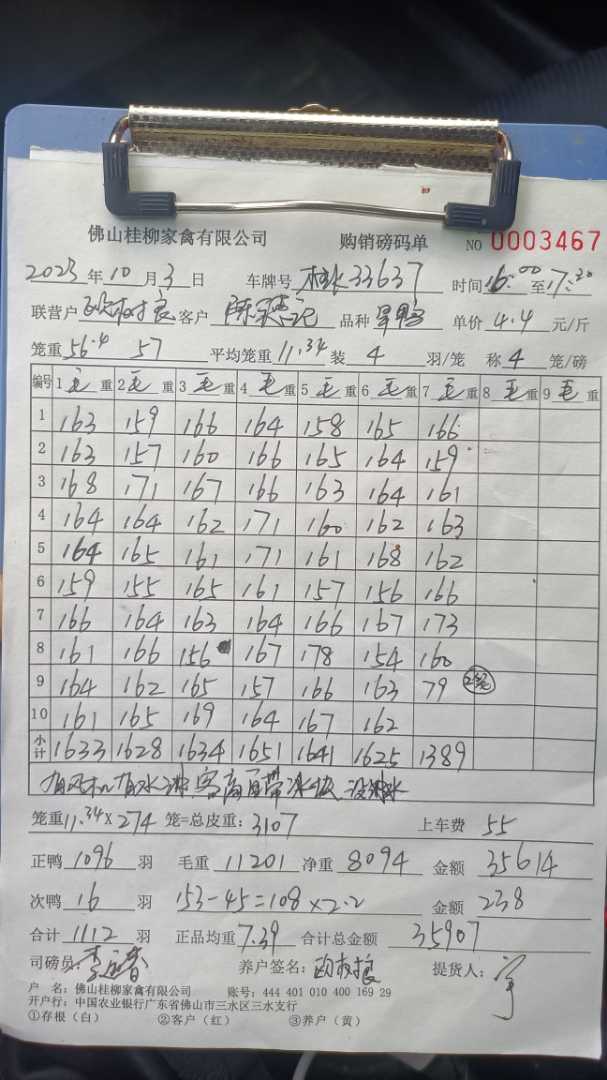 佛山桂柳家禽有限公司 购销磅码单 NO 0003467
2023年10月3日 车牌号 33637 时间16:00至17:20
联营户 客户 陈 记 品种 旱鸭 单价4.4元/斤
笼重56.4 57 平均笼重11.34装4羽/笼 称4笼/磅
编号 1毛重 2毛重 3毛重 4毛重 5毛重 6毛重 7毛重 8毛重 9毛重
1 163 159 166 164 158 165 166
2 163 157 160 166 165 164 159
3 168 171 167 166 163 164 161
4 164 164 162 171 160 162 163
5 164 165 161 171 161 168 162
6 159 155 165 161 157 156 166
7 166 164 163 164 166 167 173
8 161 166 156 167 178 154 160
9 164 162 165 157 166 163 79 2笼
10 161 165 169 164 167 162
小计 1633 1628 1634 1651 1641 1625 1389
有风机有水冲 客 带冰 没 水
笼重11.34×274笼=总皮重:3107 上车费 55
正鸭1096羽 毛重11201净重8094 金额35614
次鸭16羽 153-45=108×2.2 金额238
合计1112羽 正品均重7.39合计总金额35907
司磅员: 养户签名: 提货人:
户 名:佛山桂柳家禽有限公司 账号:444 401 010 400 169 29
开户行:中国农业银行广东省佛山市三水区三水支行
①存根(白) ②客户(红) ③养户(黄)